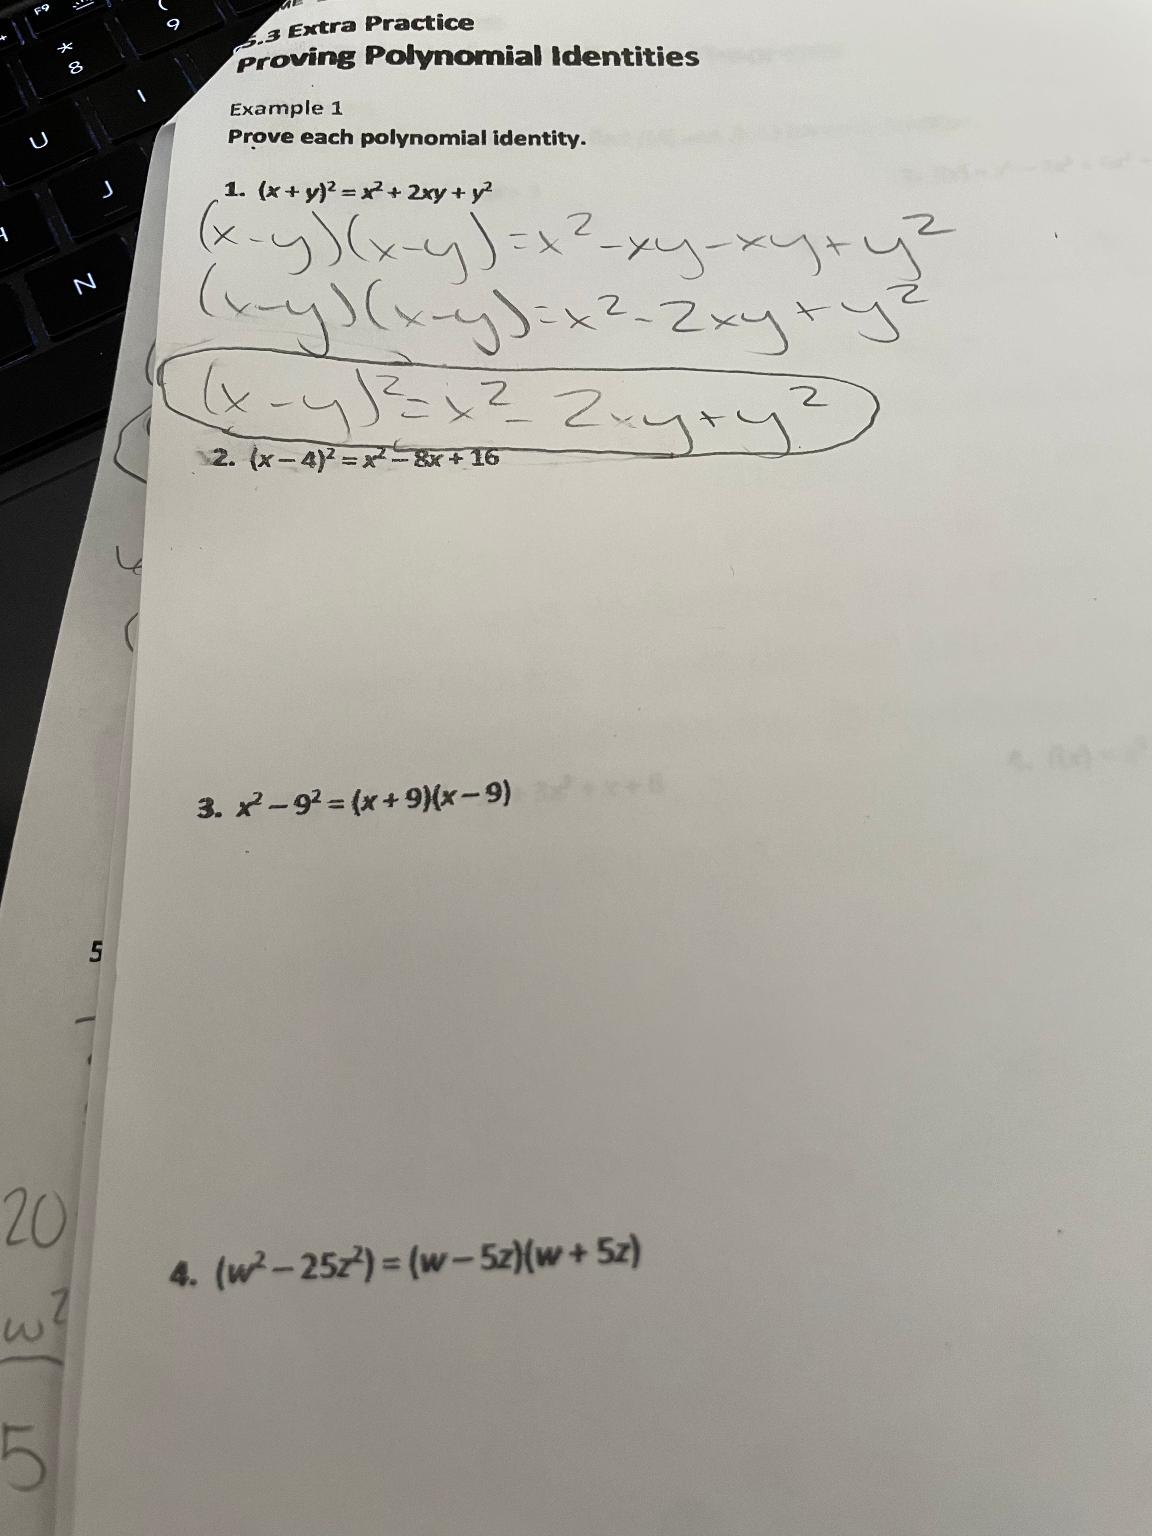 F9
*
8
(
9
U
I
J
N
5.3 Extra Practice
Proving Polynomial Identities
Example 1
Prove each polynomial identity.
1. (x + y)² = x² + 2xy + y²
(x-y)(x-y)=x²-xy-xy+y²
(x-y)(x-y)=x²-2xy+y²
(x-y)²=x²-2xy+y²
2. (x – 4)² = x² – 8x + 16
3. x² – 9² = (x + 9)(x – 9)
5
4. (w² – 25z²) = (w – 5z)(w + 5z)
20
w²
5